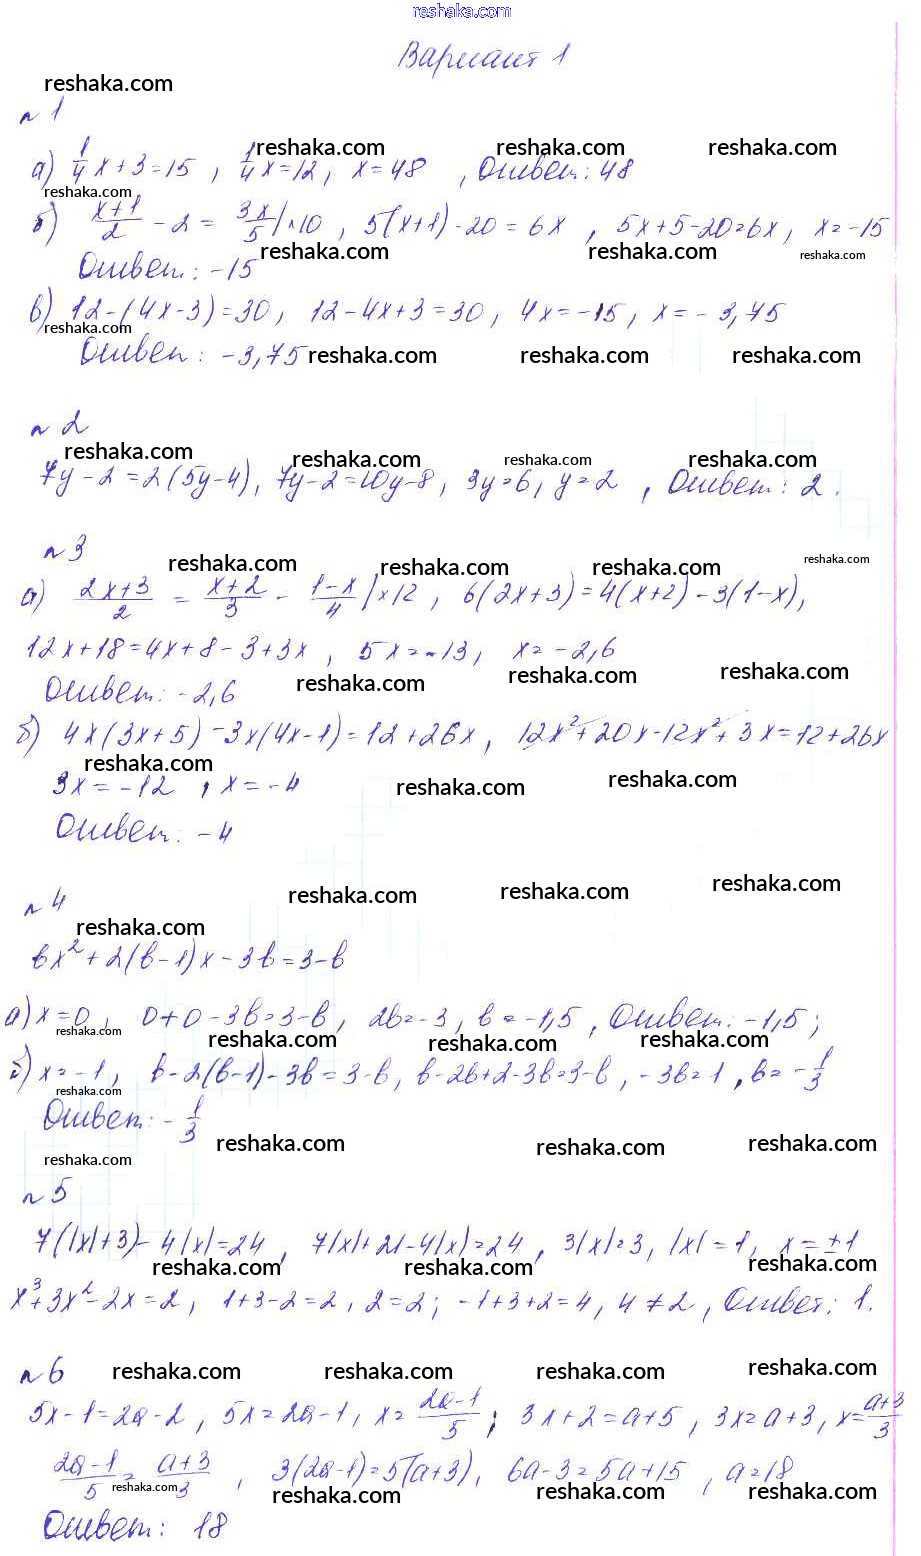 reshaka.com
Вариант 1
reshaka.com
№ 1
reshaka.com reshaka.com reshaka.com
а) 1/4 x + 3 = 15 , 1/4 x = 12, x = 48 , Ответ: 48
reshaka.com
б) (x+1)/2 - 2 = 3x/5 | ×10 , 5(x+1) - 20 = 6x , 5x+5-20=6x, x = -15
reshaka.com reshaka.com reshaka.com
Ответ: -15
в) 12-(4x-3)=30, 12-4x+3=30, 4x=-15, x=-3,75
reshaka.com
Ответ: -3,75 reshaka.com reshaka.com reshaka.com
№ 2
reshaka.com reshaka.com reshaka.com reshaka.com
7y-2=2(5y-4), 7y-2=10y-8, 3y=6, y=2 , Ответ: 2.
№ 3
reshaka.com reshaka.com reshaka.com reshaka.com
а) (2x+3)/2 = (x+2)/3 - (1-x)/4 | ×12 , 6(2x+3)=4(x+2)-3(1-x),
12x+18=4x+8-3+3x , 5x=-13, x=-2,6
reshaka.com reshaka.com reshaka.com
Ответ: -2,6
б) 4x(3x+5)-3x(4x-1)=12+26x, 12x²+20x-12x²+3x=12+26x
reshaka.com reshaka.com reshaka.com
3x=-12 , x=-4
Ответ: -4
reshaka.com reshaka.com reshaka.com
№ 4
reshaka.com
bx²+2(b-1)x-3b=3-b
а) x=0, 0+0-3b=3-b, 2b=-3, b=-1,5 , Ответ: -1,5;
reshaka.com reshaka.com reshaka.com reshaka.com
б) x=-1, b-2(b-1)-3b=3-b, b-2b+2-3b=3-b, -3b=1 , b=-1/3
reshaka.com
Ответ: -1/3
reshaka.com reshaka.com reshaka.com reshaka.com
№ 5
7(|x|+3)-4|x|=24 , 7|x|+21-4|x|=24 , 3|x|=3, |x|=1, x=±1
reshaka.com reshaka.com reshaka.com
x³+3x²-2x=2, 1+3-2=2, 2=2; -1+3+2=4, 4≠2, Ответ: 1.
№ 6 reshaka.com reshaka.com reshaka.com reshaka.com
5x-1=2a-2 , 5x=2a-1, x=(2a-1)/5 ; 3x+2=a+5 , 3x=a+3, x=(a+3)/3
(2a-1)/5 = (a+3)/3 , 3(2a-1)=5(a+3), 6a-3=5a+15 , a=18
reshaka.com reshaka.com reshaka.com reshaka.com
Ответ: 18